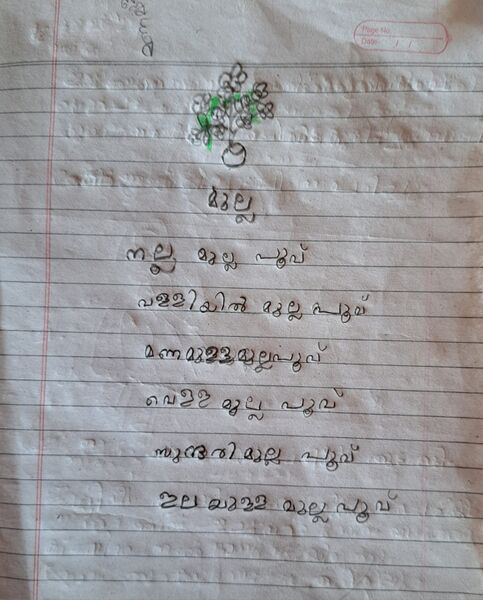 Page No.
Date / /
മുല്ല
നല്ല മുല്ല പൂവ്
വള്ളിയിൽ മുല്ല പൂവ്
മണമുള്ളമുല്ലപൂവ്
വെള്ള മുല്ല പൂവ്
സുന്ദരിമുല്ല പൂവ്
ഇലയുള്ള മുല്ല പൂവ്